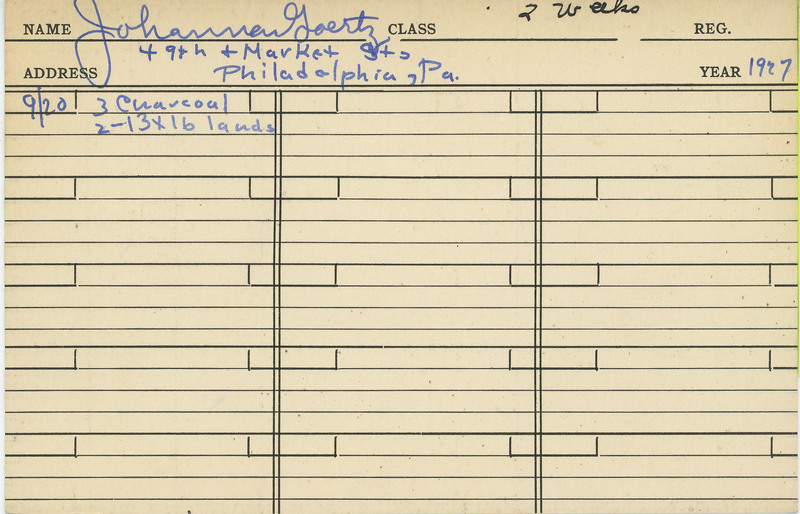 NAME Johanna Goertz CLASS 2 Weeks REG.
49th + Market Sts,
ADDRESS Philadelphia, Pa. YEAR 1927
9/20 3 Charcoal
2-13x16 lands